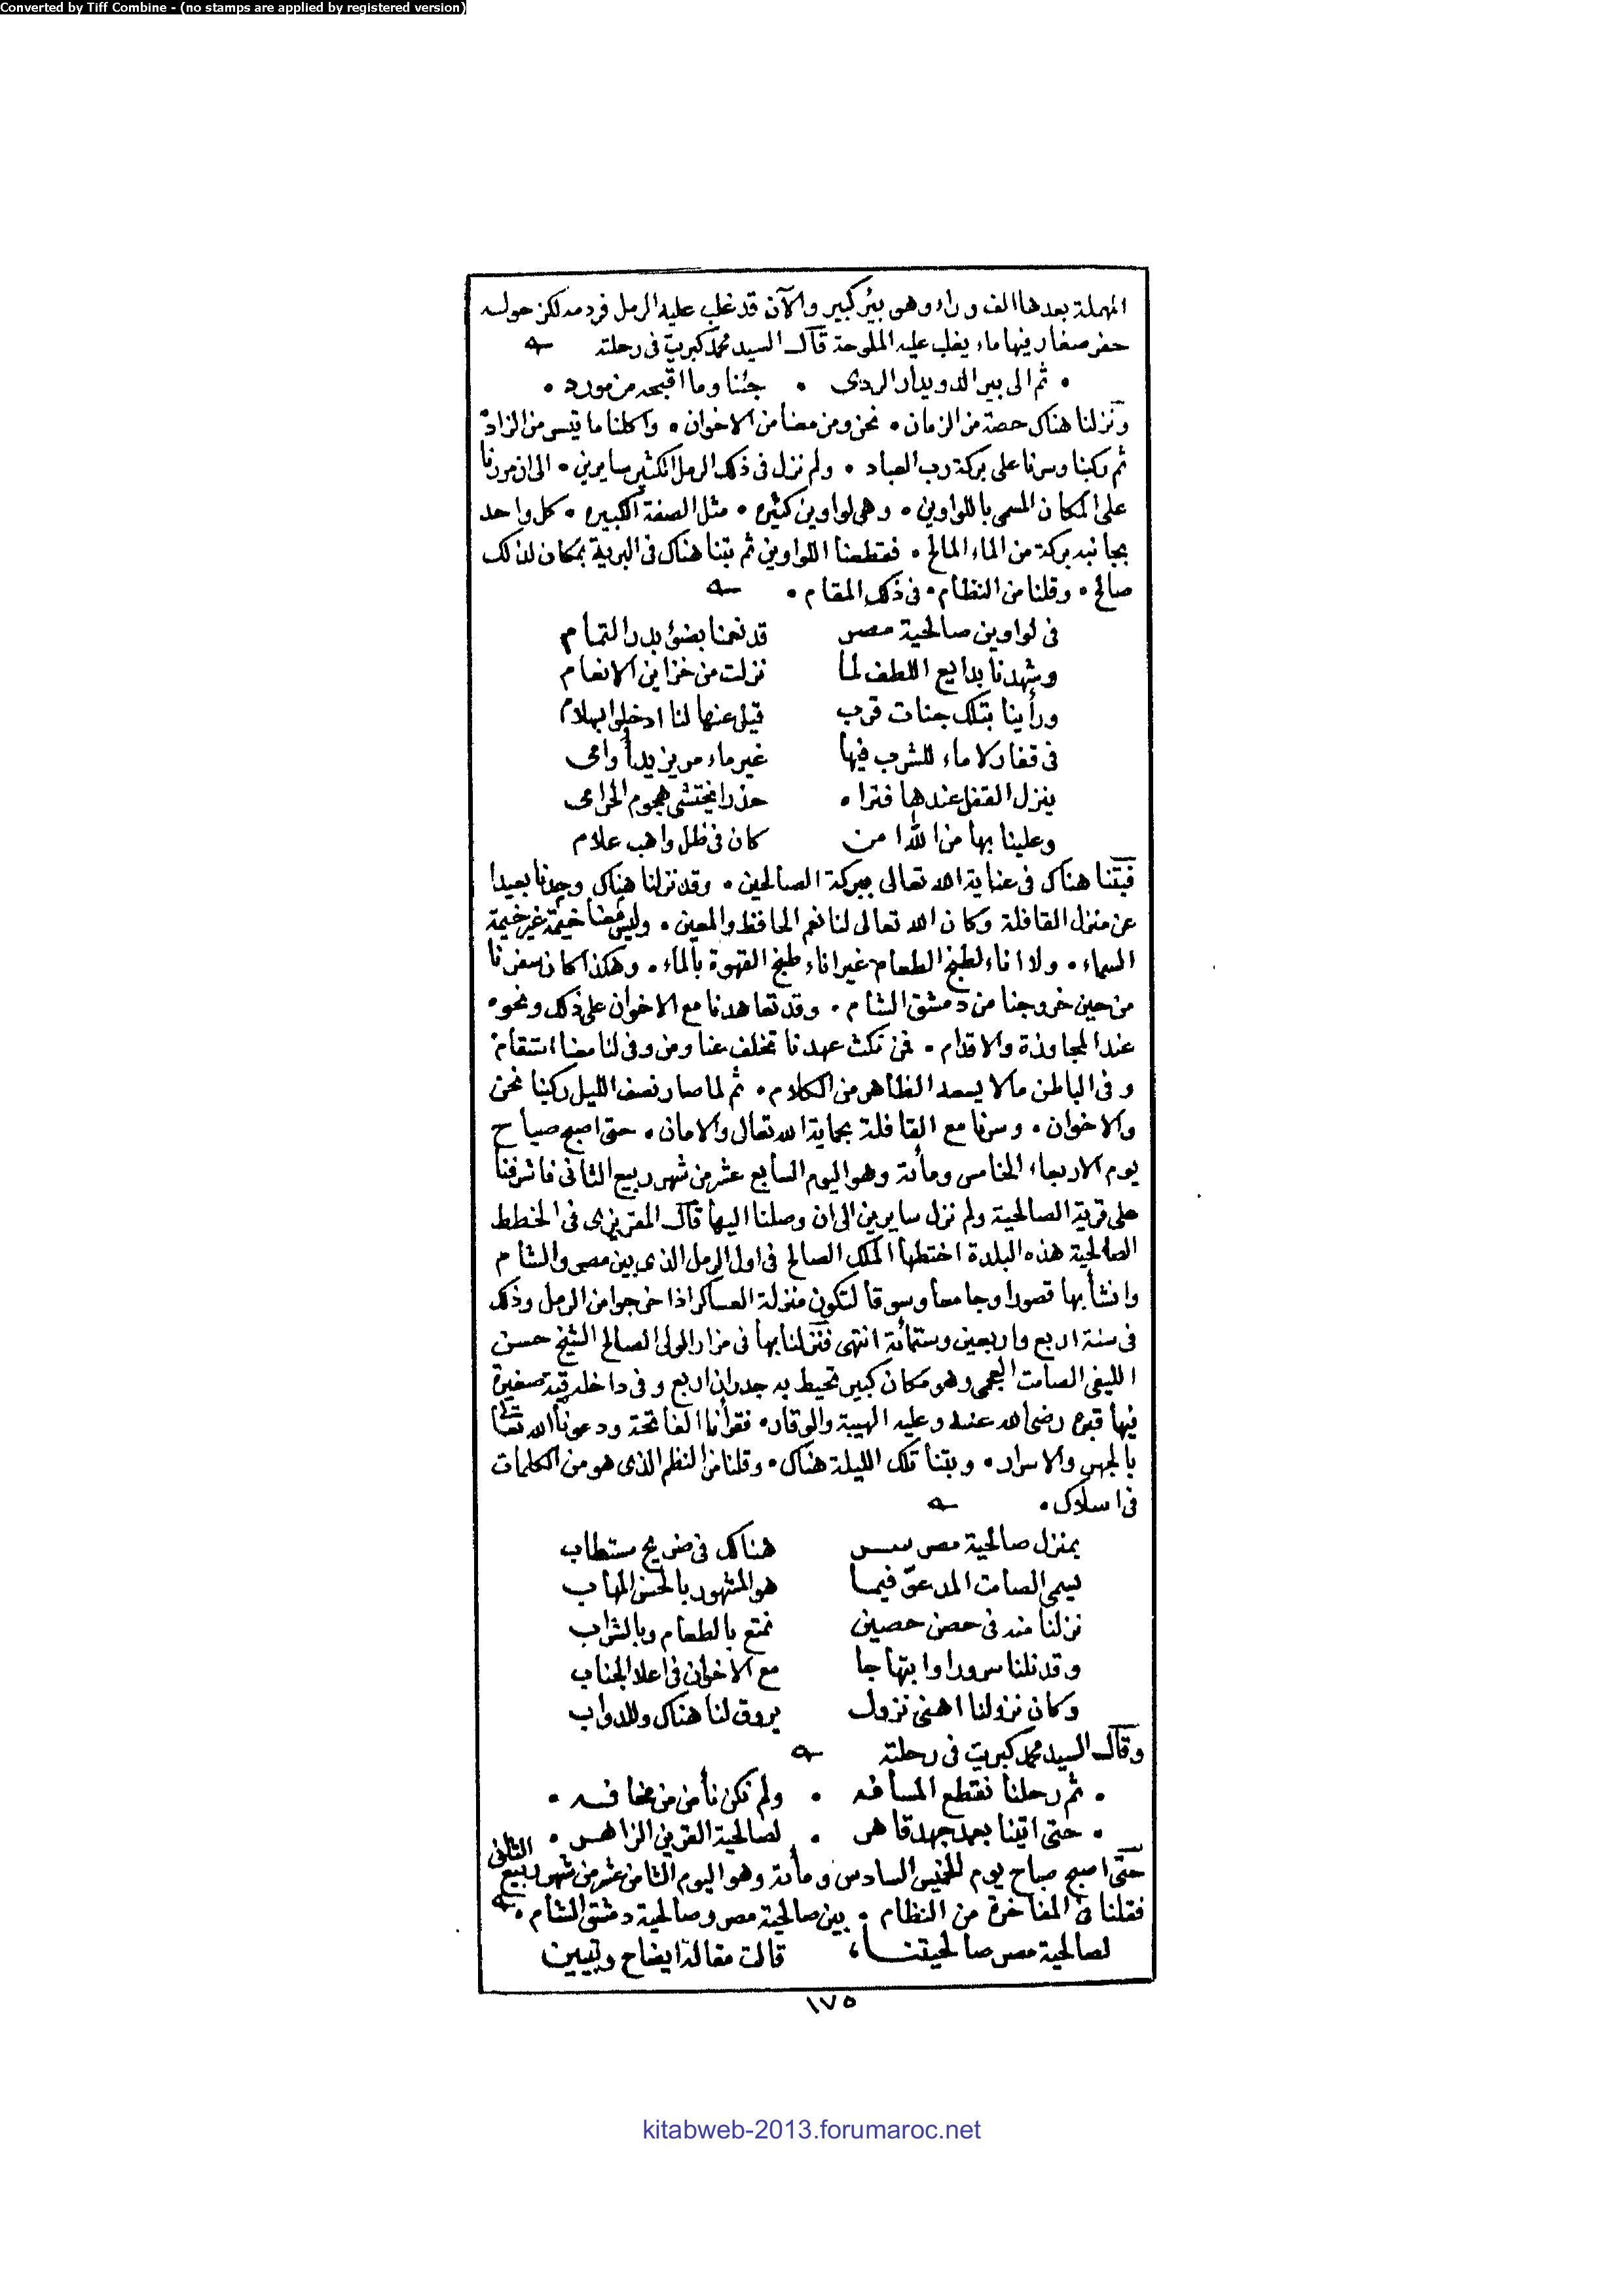 Converted by Tiff Combine - (no stamps are applied by registered version)
المهملة بعدها الف وراء وهو بئر كبير والآن قد غلب عليه الرمل فردمه لكن حوله
حفر صغار فيها ماء يغلب عليه الملوحة قال السيد محمد كبريت فى رحلته
• ثم الى بير الدويدار الردى • جئنا وما اقبحه من مورد •
ونزلنا هناك حصة من الزمان • نحن ومن معنا من الاخوان • واكلنا ما تيسر من الزاد
ثم ركبنا وسرنا على بركة رب العباد • ولم نزل فى ذلك الرمل الكثير سايرين • الى ان مررنا
على المكان المسمى باللواوين • وهى لواوين كثيره • مثل الصفة الكبيره • كل واحد
بجانبه بركة من الماء المالح • فقطعنا اللواوين ثم بتنا هناك فى البرية بمكان لذلك
صالح • وقلنا من النظام • فى ذلك المقام •
فى لواوين صالحية مصر قد نعمنا بضوء بدر التمام
وشهدنا بدايع اللطف لما نزلت من خزاين الانعام
ورأينا بتلك جنات قرب قيل عنها لنا ادخلوا بسلام
فى قفار لا ماء للشرب فيها غير ماء مر يزيد أوامى
ينزل القفل عندها فتراه حذرا يختشى هجوم الحرامى
وعلينا بها من الله امن كان فى ظل واهب علام
فبتنا هناك فى عناية الله تعالى ببركة الصالحين • وقد نزلنا هناك وحدنا بعيدا
عن منزل القافلة وكان الله تعالى لنا نعم الحافظ والمعين • وليس معنا خيمة غير خيمة
السماء • ولا اناء لطبخ الطعام غير اناء طبخ القهوة بالماء • وهكذا كان سفرنا
من حين خروجنا من دمشق الشام • وقد تعاهدنا مع الاخوان على ذلك ونحوه
عند المجاوزة والاقدام • فمن نكث عهدنا تخلف عنا ومن وفى لنا معنا استقام
وفى الباطن ما لا يسعه الظاهر من الكلام • ثم لما صار نصف الليل ركبنا نحن
والاخوان • وسرنا مع القافلة بحماية الله تعالى والامان • حتى اصبح صباح
يوم الاربعاء الخامس ومائة وهو اليوم السابع عشر من شهر ربيع الثانى فاشرفنا
على قرية الصالحية ولم نزل سايرين الى ان وصلنا اليها قال المقريزى فى الخطط
الصالحية هذه البلدة اختطها الملك الصالح فى اول الرمل الذى بين مصر والشام
وانشأ بها قصورا وجامعا وسوقا لتكون منزلة العساكر اذا خرجوا من الرمل وذلك
فى سنة اربع واربعين وستمائة انتهى فنزلنا بها فى مزار الولى الصالح الشيخ حسن
الليفى الصامت العجمى وهو مكان كبير تحيط به جدران اربع وفى داخله قبة صغيرة
فيها قبره رضى الله عنه وعليه الهيبة والوقار • فقرأنا الفاتحة ودعونا الله تعالى
بالجهر والاسرار • وبتنا تلك الليلة هناك • وقلنا من النظم الذى هو من الكلمات
فى اسلاك •
بمنزل صالحية مصر هناك فى ضريح مستطاب
يسمى الصامت المدعوّ فيما هو المشهور بالحسن المهاب
نزلنا منه فى حصن حصين نمتع بالطعام وبالشراب
وقد نلنا سرورا وابتهاجا مع الاخوان فى اعلا الجناب
وكان نزولنا اهنى نزول يروق لنا هناك وللدواب
وقال السيد محمد كبريت فى رحلته
• ثم رحلنا نقطع المسافه • ولم نكن نأمن من مخافه •
• حتى اتينا بعد جهد قاهر • لصالحية القرين الزاهر •
حتى اصبح صباح يوم الخميس السادس ومائة وهو اليوم الثامن عشر من شهر ربيع الثانى
فقلنا فى المفاخرة من النظام • بين صالحية مصر وصالحية دمشق الشام •
لصالحية مصر صالحيتنا، قالت مقالة ايضاح وتبيين
١٧٥
kitabweb-2013.forumaroc.net